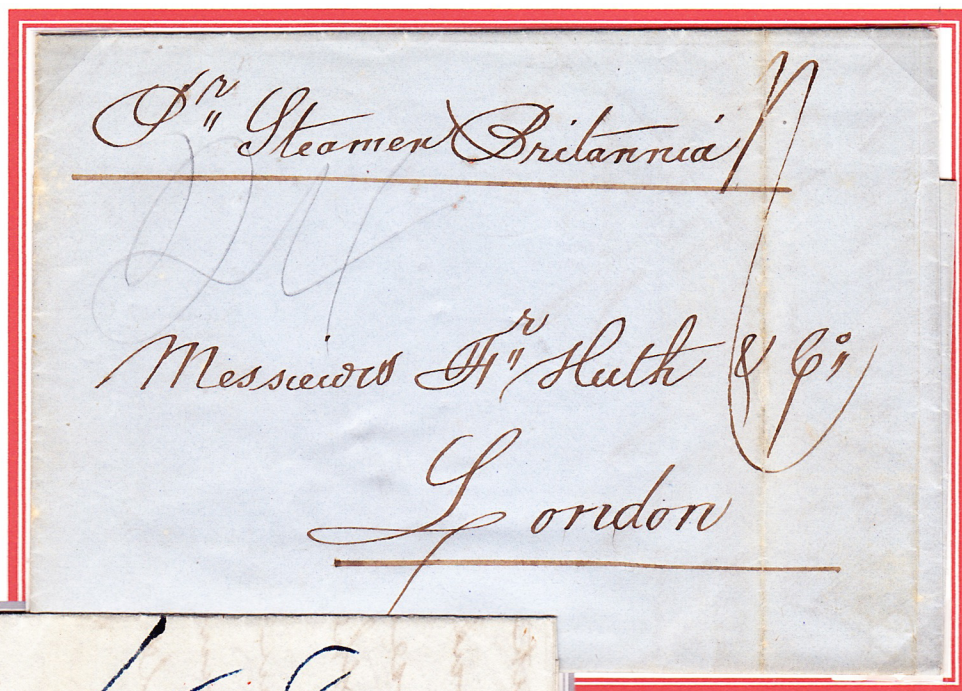 Pr" Steamer Britannia
24
Messieurs Fr" Huth & Co"
London